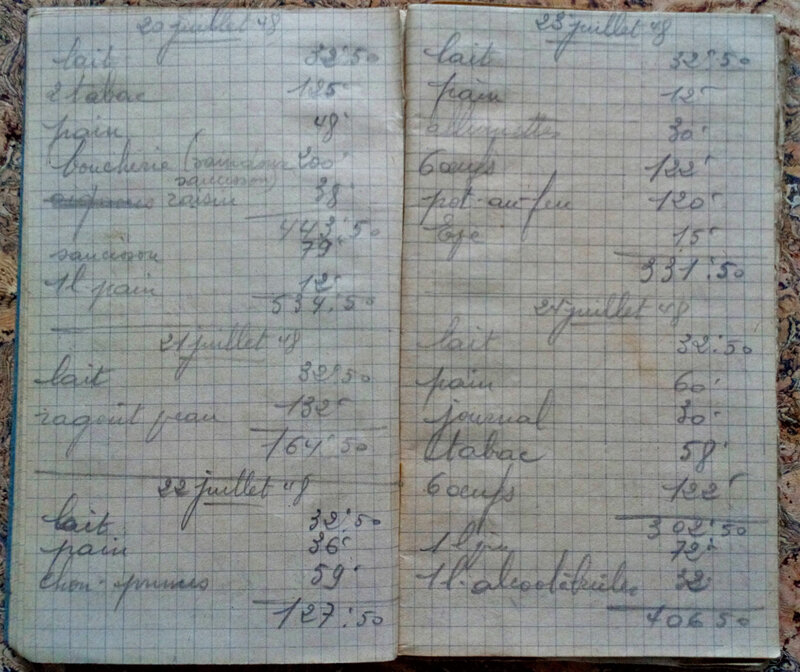 20 juillet 48
lait 32:50
2 tabac 125
pain 48
boucherie (saindoux 200
saucisson)
raisin 38
443:50
saucisson 79
1l. pain 12
534:50
21 juillet 48
lait 32:50
ragoût 132
164:50
22 juillet 48
lait 32:50
pain 36
chou- 59
127:50
23 juillet 48
lait 32:50
pain 12
allumettes 30
6 oeufs 122
pot-au-feu 120
15
331:50
24 juillet 48
lait 32:50
pain 60
journal 30
tabac 58
6 oeufs 122
302:50
1l 72
1l. alcool à brûler 32
406 50